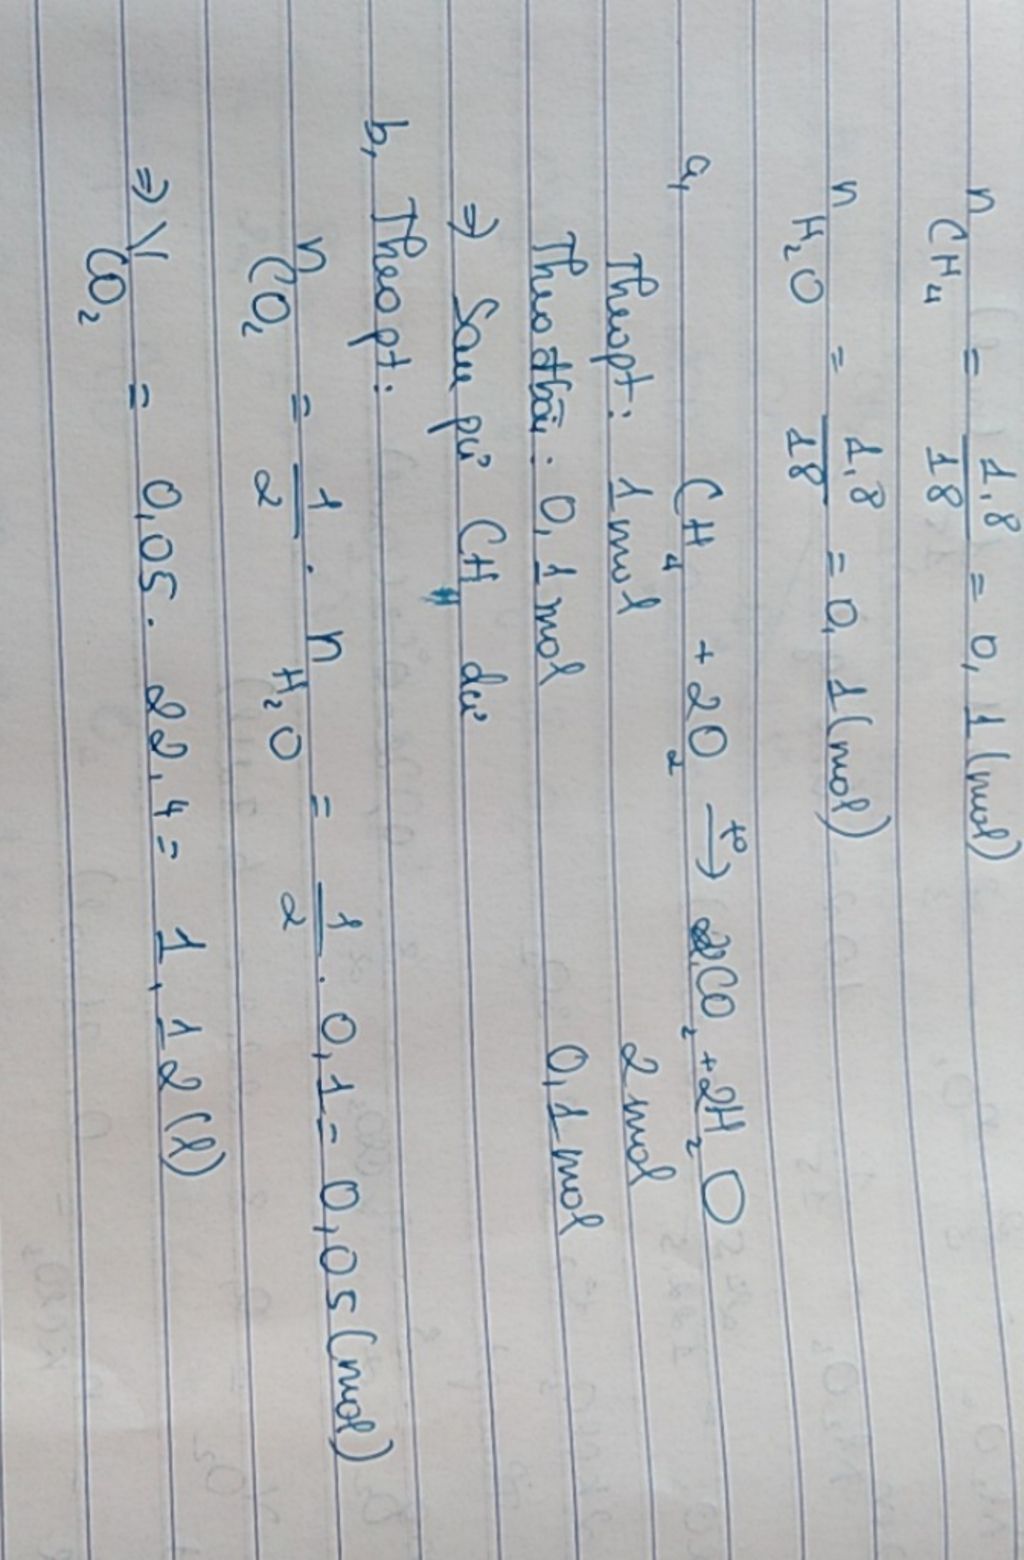 n CH₄ = 1,8/18 = 0,1 (mol)
n H₂O = 1,8/18 = 0,1 (mol)
a, CH₄ + 2O₂ t⁰→ CO₂ + 2H₂O
Theo pt: 1 mol 2 mol
Theo đbài: 0,1 mol 0,1 mol
=> Sau pứ CH₄ dư
b, Theo pt:
n CO₂ = 1/2 . n H₂O = 1/2 . 0,1 = 0,05 (mol)
=> V CO₂ = 0,05 . 22,4 = 1,12 (l)